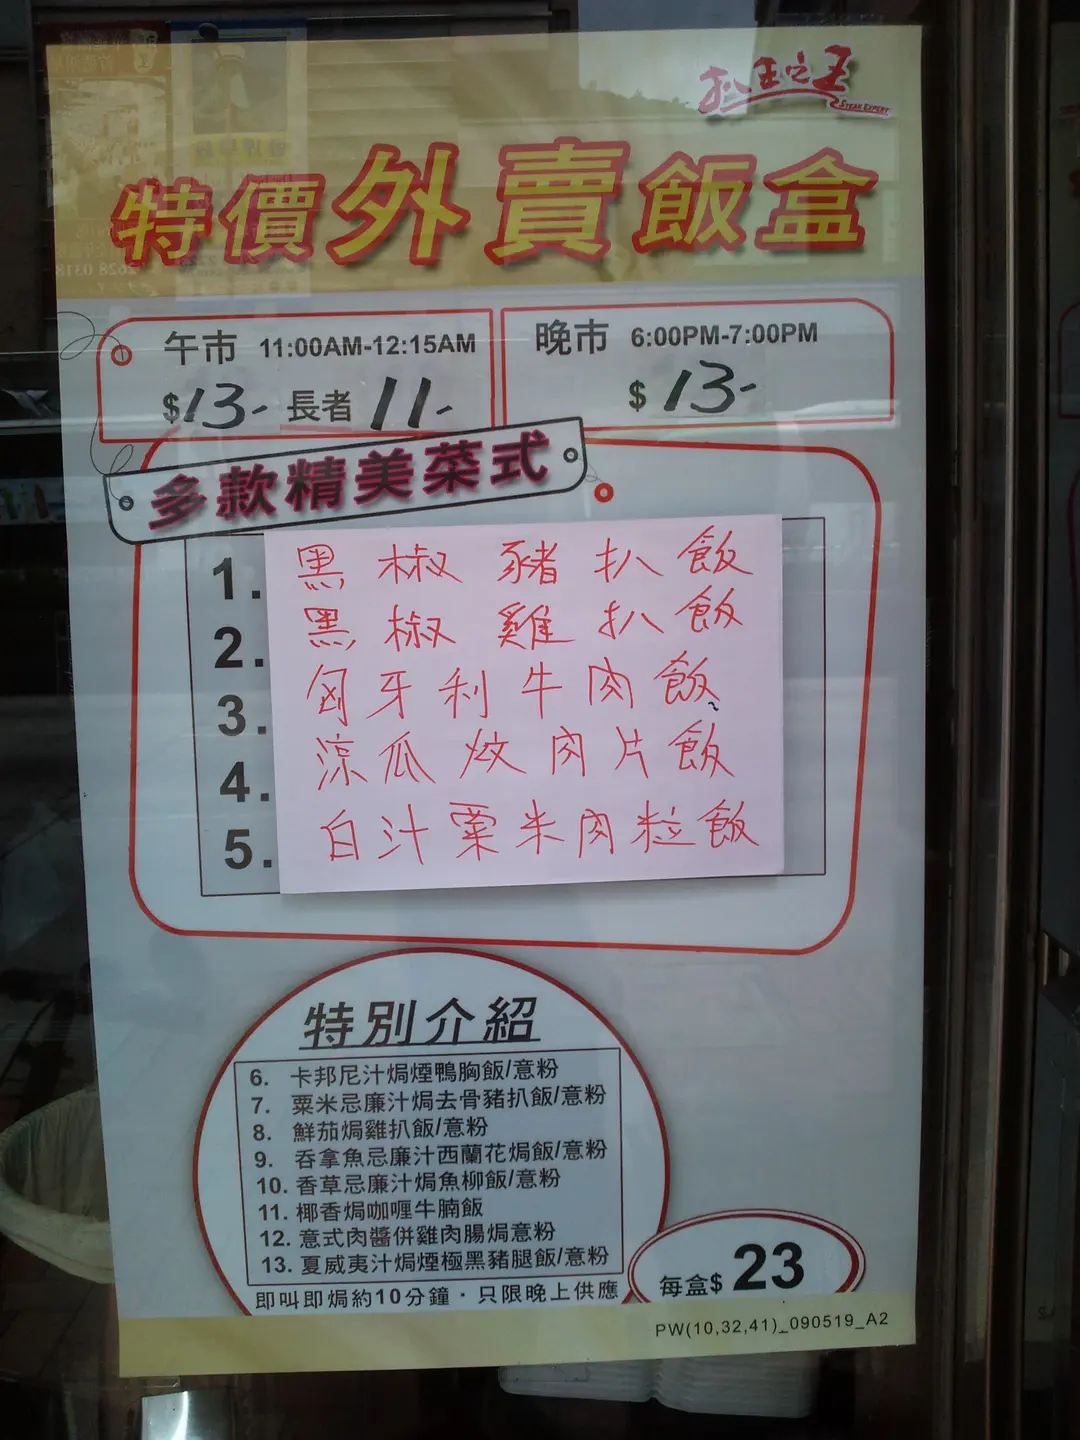 扒王之王
STEAK EXPERT
特價外賣飯盒
午市 11:00AM-12:15AM
$13- 長者 11-
晚市 6:00PM-7:00PM
$13-
多款精美菜式
1. 黑椒豬扒飯
2. 黑椒雞扒飯
3. 匈牙利牛肉飯
4. 涼瓜炆肉片飯
5. 白汁粟米肉粒飯
特別介紹
6. 卡邦尼汁焗煙鴨胸飯/意粉
7. 粟米忌廉汁焗去骨豬扒飯/意粉
8. 鮮茄焗雞扒飯/意粉
9. 吞拿魚忌廉汁西蘭花焗飯/意粉
10. 香草忌廉汁焗魚柳飯/意粉
11. 椰香焗咖喱牛腩飯
12. 意式肉醬併雞肉腸焗意粉
13. 夏威夷汁焗煙極黑豬腿飯/意粉
即叫即焗約10分鐘・只限晚上供應
每盒$ 23
PW(10,32,41)_090519_A2